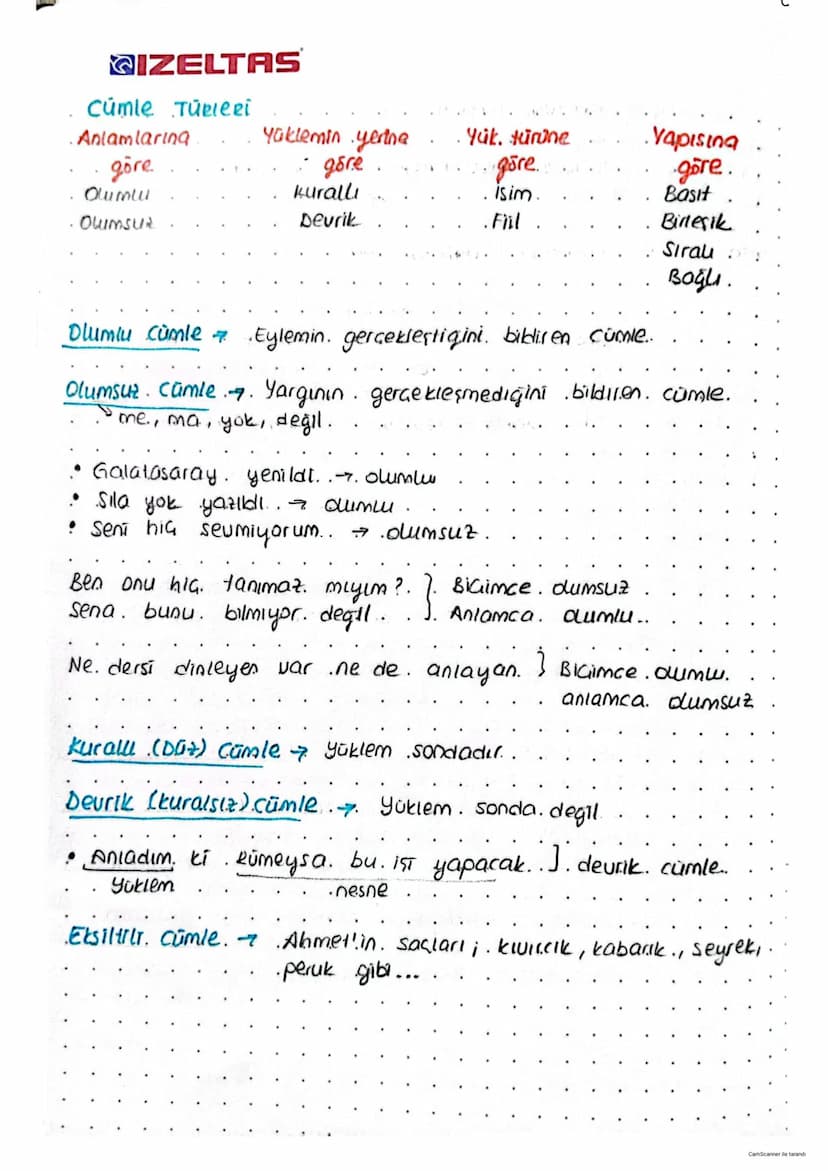 IZELTAS
Cümle Türleri
Anlamlarına Yüklemin yerine Yük. türüne Yapısına
göre göre göre göre
Olumlu kurallı İsim Basit
Olumsuz Devrik Fiil Birleşik
Sıralı
Bağlı
Olumlu cümle → Eylemin gerçekleştiğini bildiren cümle.
Olumsuz Cümle → Yargının gerçekleşmediğini bildiren cümle.
me, ma, yok, değil.
• Galatasaray yenildi. → olumlu
• Sıla yok yazıldı. → olumlu
• Seni hiç sevmiyorum. → olumsuz
Ben onu hiç tanımaz mıyım? } Biçimce olumsuz
Sena bunu bilmiyor değil. } Anlamca olumlu.
Ne dersi dinleyen var ne de anlayan. } Biçimce olumlu
anlamca olumsuz
Kurallı (Düz) Cümle → Yüklem sondadır.
Devrik (kuralsız) cümle → Yüklem sonda değil
• Anladım ki Rümeysa bu işi yapacak. ] devrik cümle.
Yüklem nesne
Eksiltili Cümle → Ahmet'in saçları; kıvırcık, kabarık, seyrek,
peruk gibi...
CamScanner ile tarandı